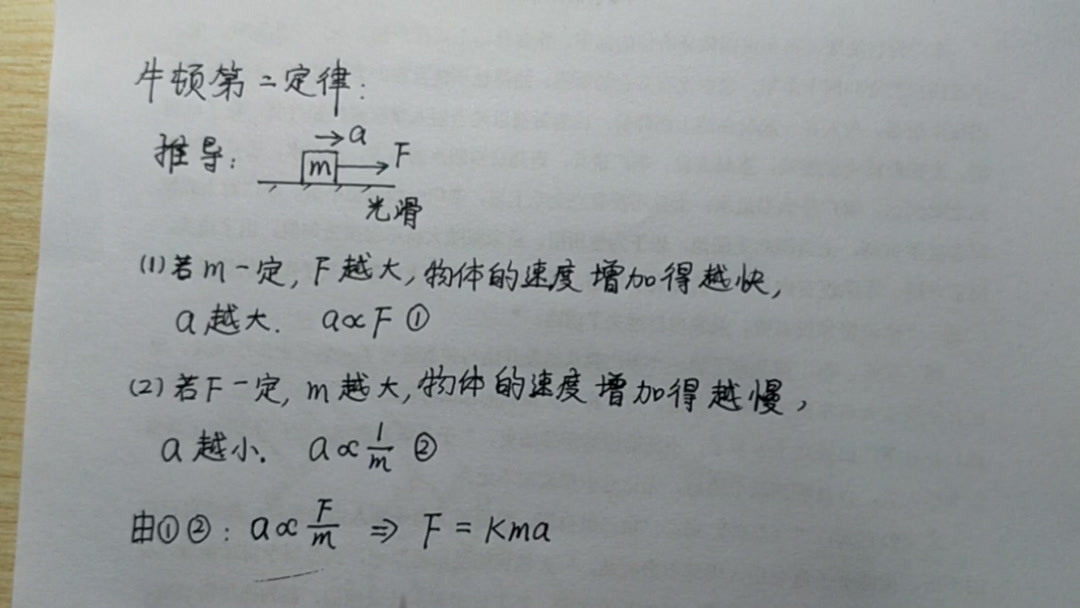 牛顿第二定律:
推导: m a F
光滑
(1) 若m一定, F越大, 物体的速度增加得越快,
a越大. a∝F ①
(2) 若F一定, m越大, 物体的速度增加得越慢,
a越小. a∝1/m ②
由①②: a∝F/m ⇒ F=Kma